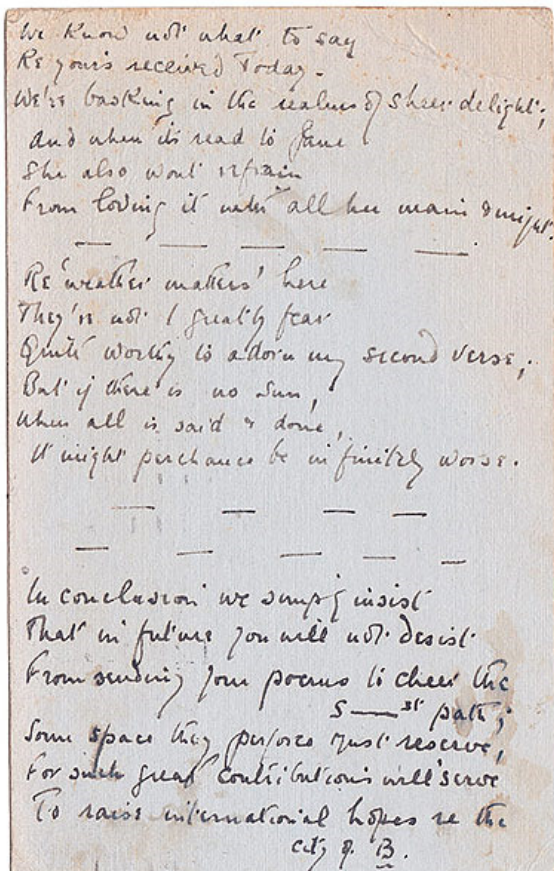 We know not what to say
Re yours received Today.
We're basking in the realms of sheer delight;
And when its read to Jane
She also wont refrain
From loving it with all her main & might.
— — — — —
Re 'weather matters' here
They're not I greatly fear
Quite worthy to adorn my second verse;
But if there is no sun,
When all is said & done,
It might perchance be infinitely worse.
— — — —
— — — — —
In conclusion we simply insist
That in future you will not desist
From sending your poems to cheer the
S——st path;
Some space they perforce must reserve,
For such great contributions will serve
To raise international hopes re the
city of B.